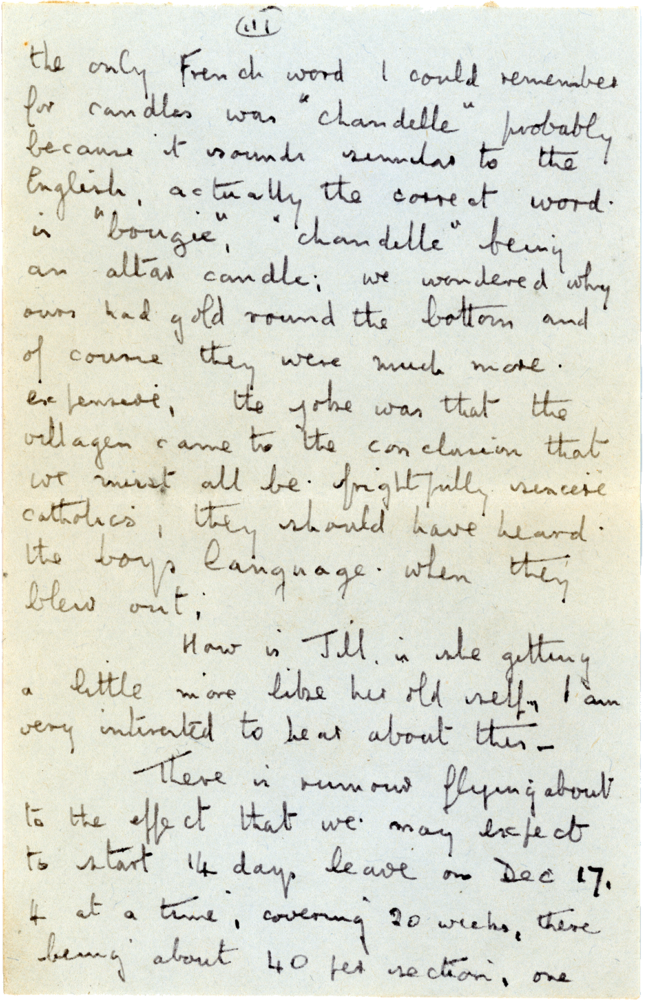 (III)
the only French word I could remember
for candles was "chandelle" probably
because it sounds similar to the
English, actually the correct word.
is "bougie", "chandelle" being
an altar candle; we wondered why
ours had gold round the bottom and
of course they were much more.
expensive, the joke was that the
villagers came to the conclusion that
we must all be. frightfully sincere
catholics, they should have heard.
the boys language. when they
blew out;
How is Jill. is she getting
a little more like her old self, I am
very interested to hear about this_
There is rumour flying about
to the effect that we. may expect
to start 14 days leave on Dec 17.
4 at a time, covering 20 weeks, there
being about 40 per section, one